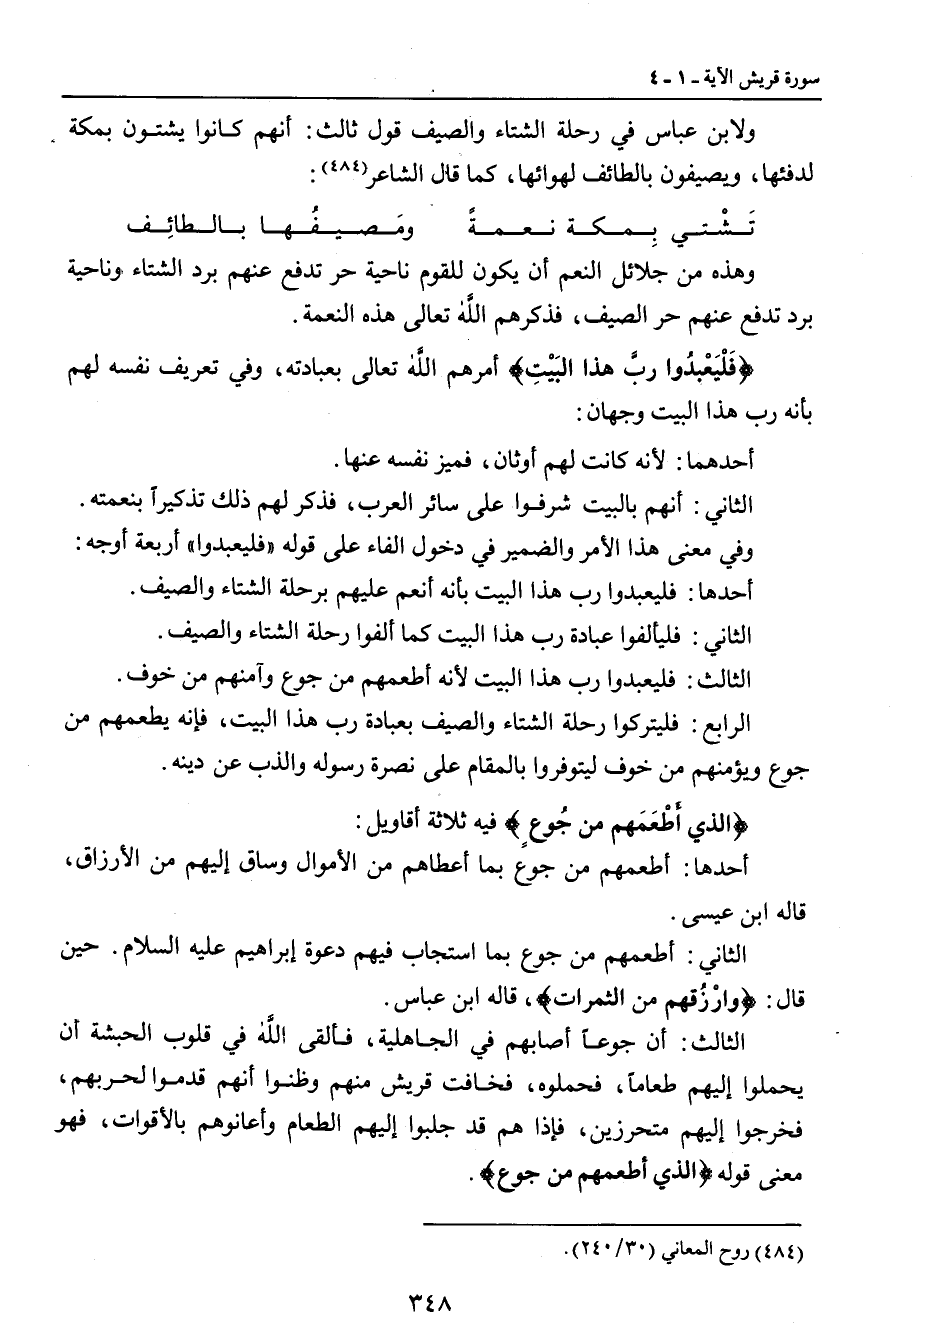 سورة قريش الآية ـ ١ ـ ٤
ولابن عباس في رحلة الشتاء والصيف قول ثالث: أنهم كانوا يشتون بمكة
لدفئها، ويصيفون بالطائف لهوائها، كما قال الشاعر(٤٨٤):
تَشْتي بِمكة نعمةً ومَصيفُها بالطائِف
وهذه من جلائل النعم أن يكون للقوم ناحية حر تدفع عنهم برد الشتاء وناحية
برد تدفع عنهم حر الصيف، فذكرهم اللَّه تعالى هذه النعمة.
﴿فَلْيَعْبدُوا ربَّ هذا البَيْتِ﴾ أمرهم اللَّه تعالى بعبادته، وفي تعريف نفسه لهم
بأنه رب هذا البيت وجهان:
أحدهما: لأنه كانت لهم أوثان، فميز نفسه عنها.
الثاني: أنهم بالبيت شرفوا على سائر العرب، فذكر لهم ذلك تذكيراً بنعمته.
وفي معنى هذا الأمر والضمير في دخول الفاء على قوله «فليعبدوا» أربعة أوجه:
أحدها: فليعبدوا رب هذا البيت بأنه أنعم عليهم برحلة الشتاء والصيف.
الثاني: فليألفوا عبادة رب هذا البيت كما ألفوا رحلة الشتاء والصيف.
الثالث: فليعبدوا رب هذا البيت لأنه أطعمهم من جوع وآمنهم من خوف.
الرابع: فليتركوا رحلة الشتاء والصيف بعبادة رب هذا البيت، فإنه يطعمهم من
جوع ويؤمنهم من خوف ليتوفروا بالمقام على نصرة رسوله والذب عن دينه.
﴿الذي أَطْعَمَهم من جُوعٍ﴾ فيه ثلاثة أقاويل:
أحدها: أطعمهم من جوع بما أعطاهم من الأموال وساق إليهم من الأرزاق،
قاله ابن عيسى.
الثاني: أطعمهم من جوع بما استجاب فيهم دعوة إبراهيم عليه السلام. حين
قال: ﴿وارْزُقهم من الثمرات﴾، قاله ابن عباس.
الثالث: أن جوعاً أصابهم في الجاهلية، فألقى اللَّه في قلوب الحبشة أن
يحملوا إليهم طعاماً، فحملوه، فخافت قريش منهم وظنوا أنهم قدموا لحربهم،
فخرجوا إليهم متحرزين، فإذا هم قد جلبوا إليهم الطعام وأعانوهم بالأقوات، فهو
معنى قوله ﴿الذي أطعمهم من جوع﴾.
(٤٨٤) روح المعاني (٢٤٠/٣٠).
٣٤٨